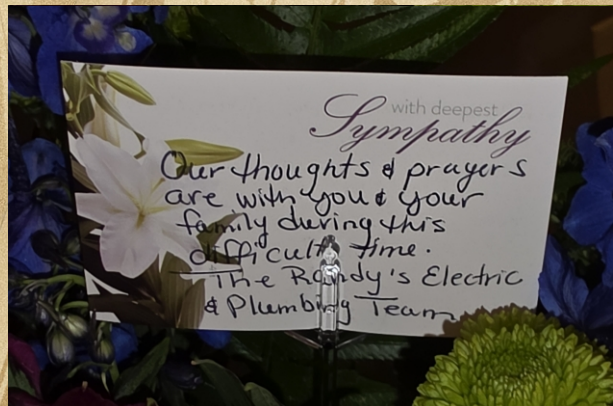 with deepest
Sympathy
Our thoughts & prayers
are with you & your
family during this
difficult time.
The Randy's Electric
& Plumbing Team